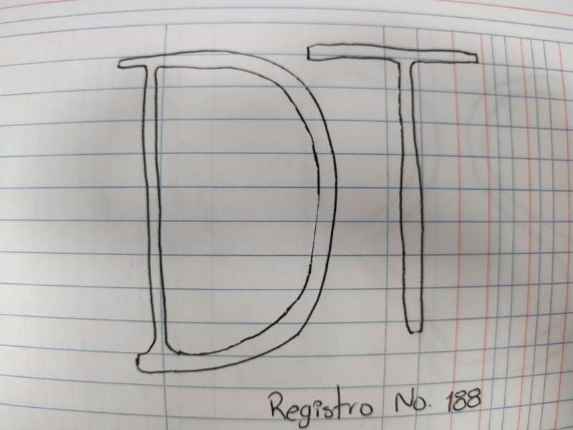 DT
Registro No. 188